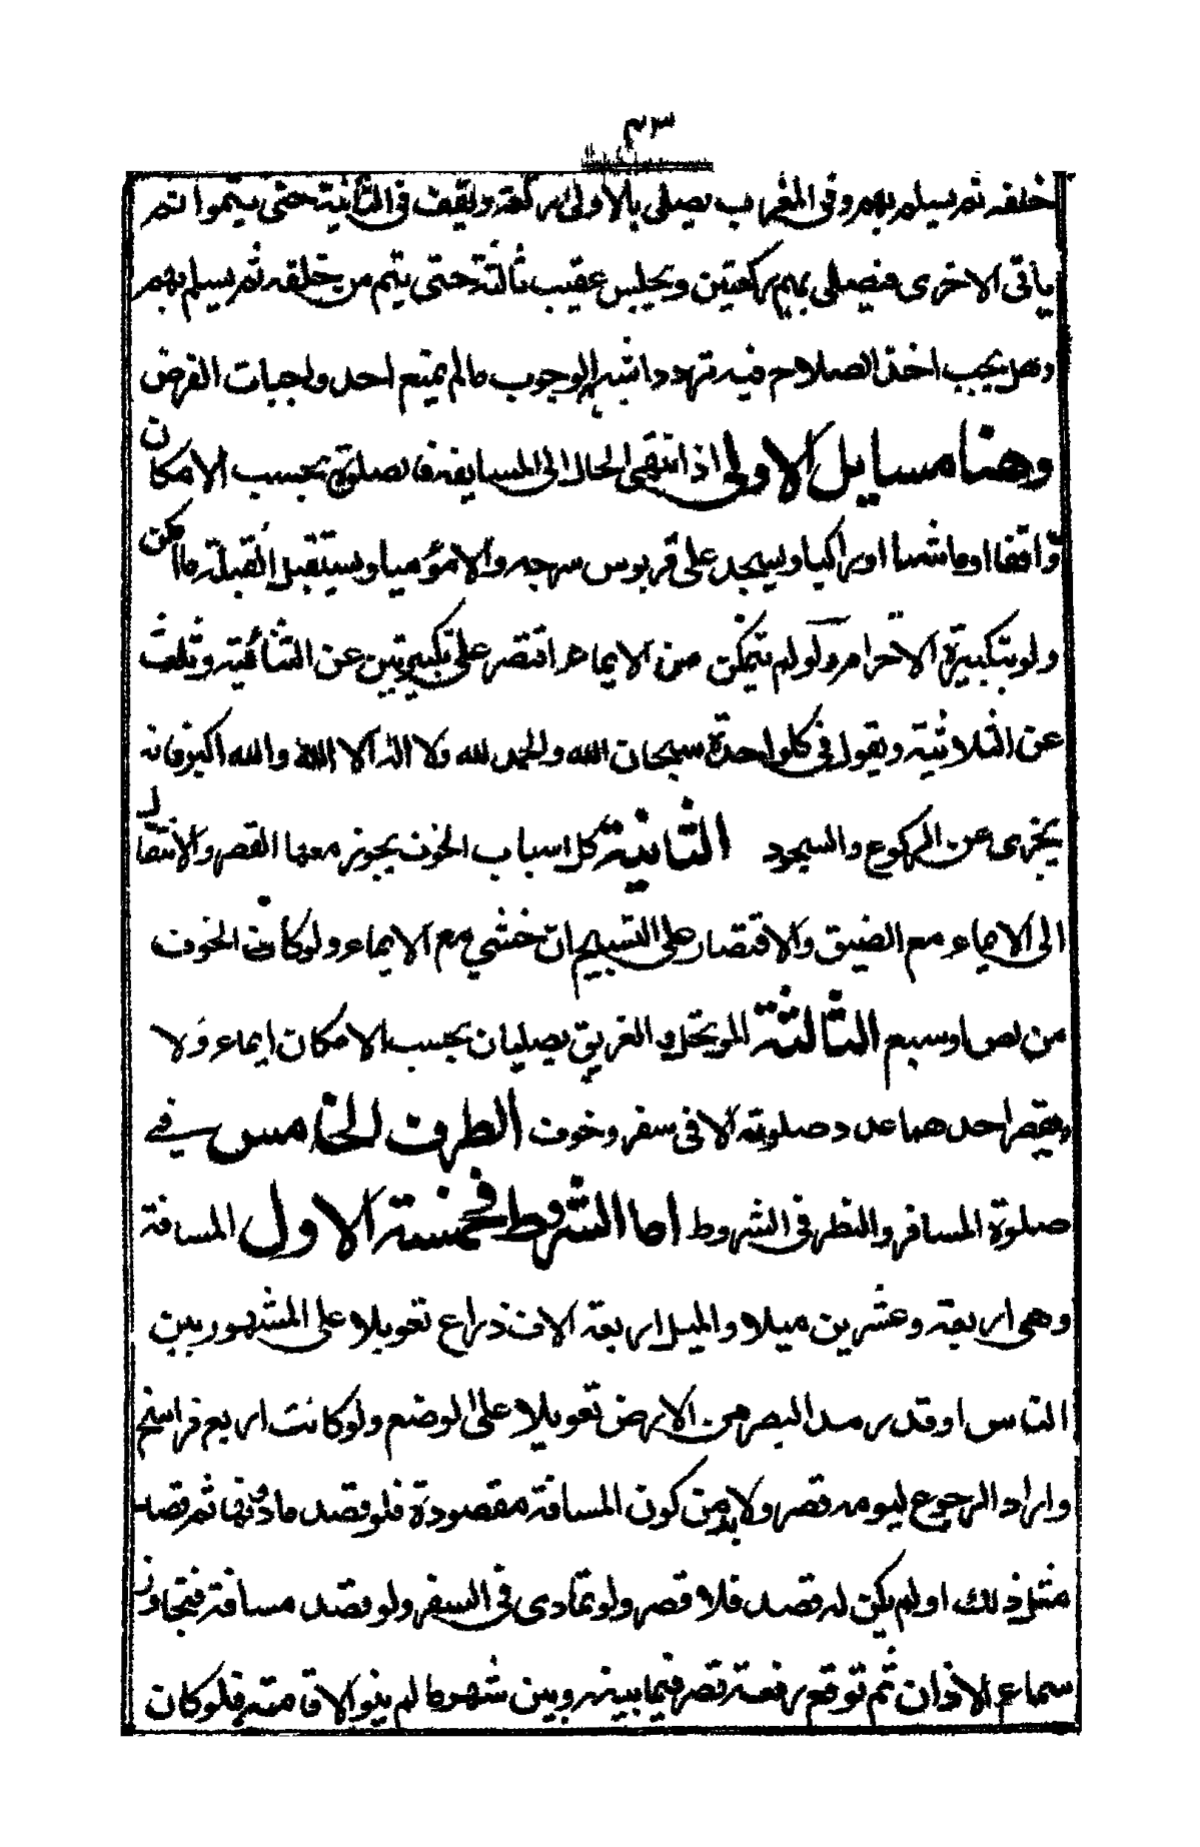 ٤٣
خلفه ثم يسلم بهم وفى المغرب يصلى بالاولى ركعة ويقف فى الثانية حتى يتموا ثم
يأتى الاخرى فيصلى بهم ركعتين ويجلس عقيب ثالثة حتى يتم من خلفه ثم يسلم بهم
وهل يجب اخذ السلاح فيه تردد اشبه الوجوب مالم يمنع احد واجبات الفرض
وهنا مسايل الاولى اذا انتهى الحال الى المسايفة فالصلوة بحسب الامكان
واقفا او ماشيا او راكبا ويسجد على قربوس سرجه والا مؤميا ويستقبل القبلة ما امكن
ولو بتكبيرة الاحرام ولو لم يتمكن من الايماء اقتصر على تكبيرتين عن الثنائية وثلث
عن الثلاثية ويقول فى كل واحدة سبحان الله والحمد لله ولا اله الا الله والله اكبر فانه
يجزى عن الركوع والسجود الثانية كل اسباب الخوف يجوز معها القصر والانتقال
الى الايماء مع الضيق والاقتصار على التسبيح ان خشي مع الايماء ولو كان الخوف
من لص او سبع الثالثة الموتحل والغريق يصليان بحسب الامكان ايماء ولا
يقصر احدهما عدد صلوته الا فى سفر وخوف الطرف الخامس في
صلوة المسافر والنظر فى الشروط اما الشروط فخمسة الاول المسافة
وهى اربعة وعشرين ميلا والميل اربعة الاف ذراع تعويلا على المشهور بين
الناس او قدر مد البصر من الارض تعويلا على الوضع ولو كانت اربع فراسخ
واراد الرجوع ليومه قصر ولا بد من كون المسافة مقصودة فلو قصد ما دونها ثم قصد
مثل ذلك او لم يكن له قصد فلا قصر ولو تمادى فى السفر ولو قصد مسافة فتجاوز
سماع الاذان ثم توقع رفعة قصر فيما بينه وبين شهر ما لم ينو الاقامة فلو كان